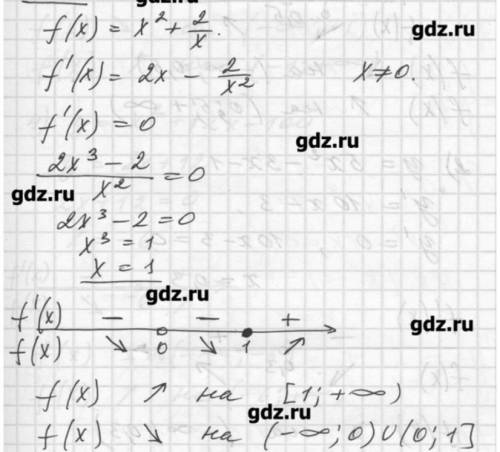 gdz.ru
f(x) = x² + 2/x.
gdz.ru
f'(x) = 2x − 2/x²   x ≠ 0.
f'(x) = 0
gdz.ru
(2x³ − 2)/x² = 0
gdz.ru
2x³ − 2 = 0
x³ = 1
x = 1
gdz.ru
f'(x) − − +
gdz.ru
f(x) ↘ 0 ↘ 1 ↗
f(x) ↗ на [1; +∞)
gdz.ru
f(x) ↘ на (−∞; 0) ∪ (0; 1]